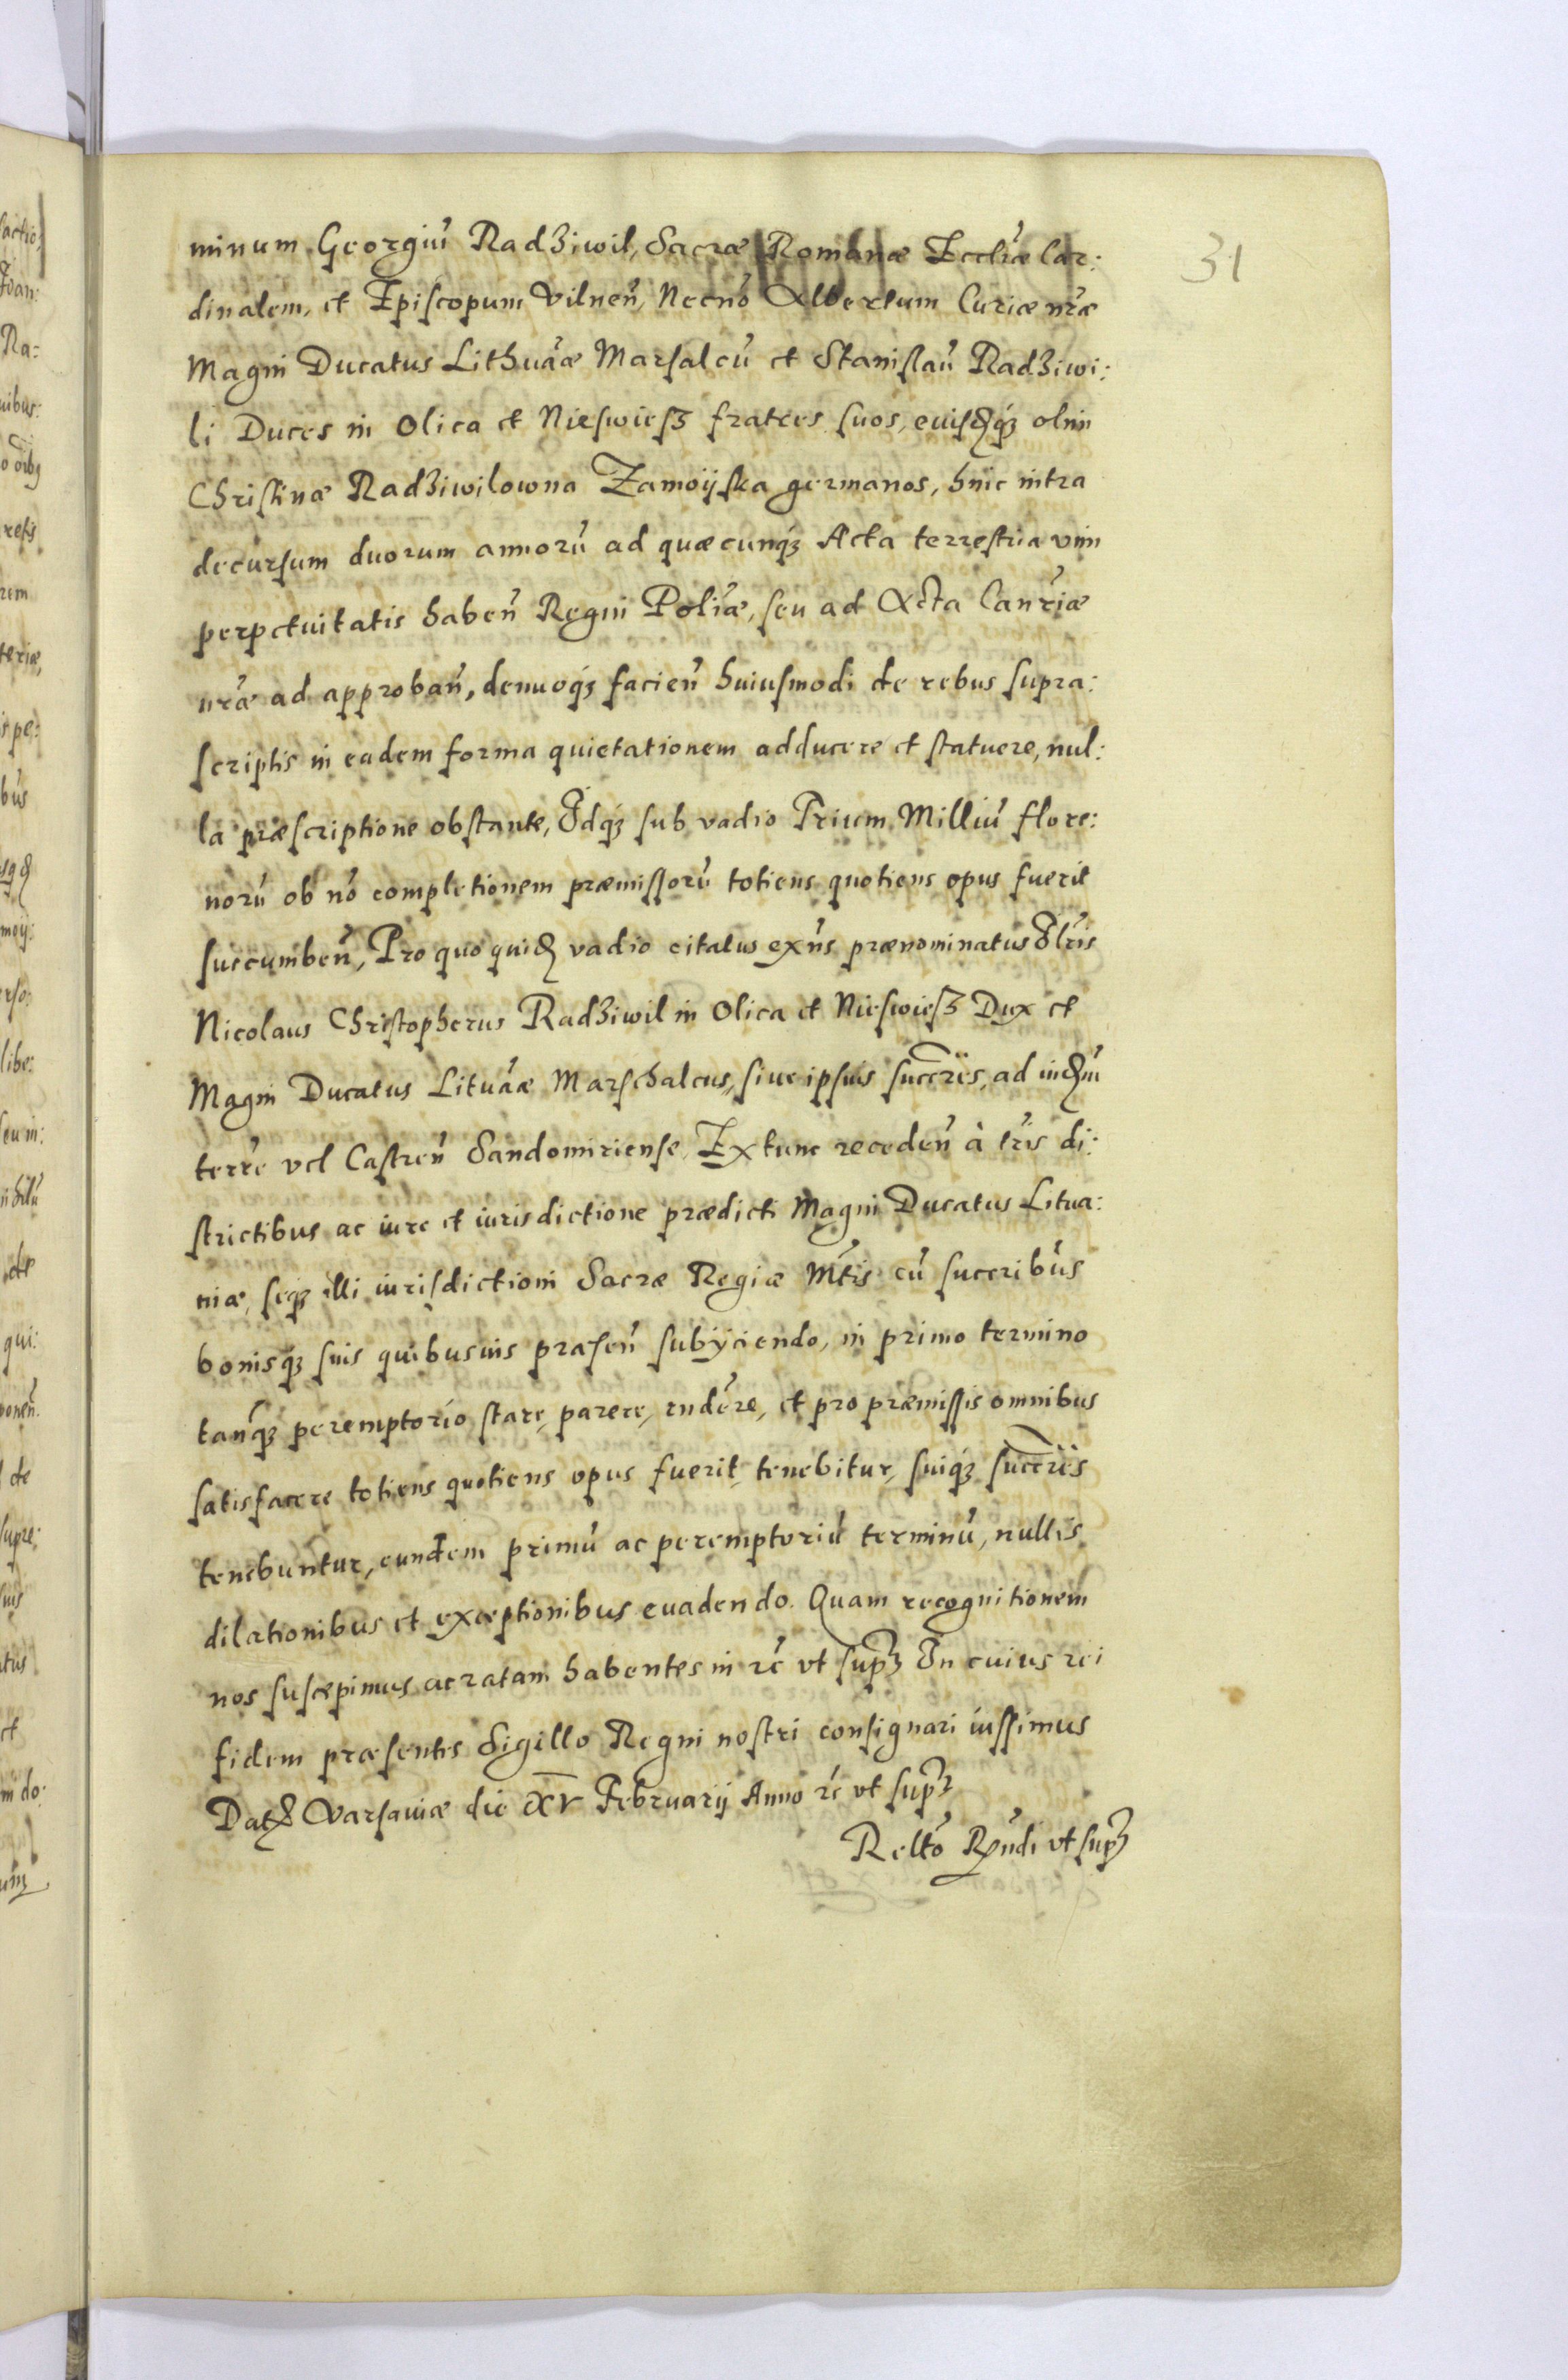 31
minum Georgiu͂ Radziwil, Sacræ Romanæ Eccl͂iæ Car:
dinalem, et Episcopum Vilnen͂, Necno͂ Albertum Curiæ nr͂æ
Magni Ducatus Lithua͂æ Marsalcu͂ et Stanislau͂ Radziwi:
li Duces in Olica et Nieswiesz fratres suos, eiusdq́ꝫ olim
Christinæ Radziwilowna Zamoijska germanos, hu͂ic intra
decursum duorum annoru͂ ad quæcunq́ꝫ Acta terrestria vim
perpetuitatis haben͂ Regni Poli͂æ, seu ad Acta Canri͂æ
nr͂æ ad approban͂, denuoq́ꝫ facien͂ huiusmodi de rebus supra:
scriptis in eadem forma quietationem adducere et statuere, nul:
la præscriptione obstante, Idq́ꝫ sub vadio Trium Milliu͂ flore:
noru͂ ob no͂ completionem præmissoru͂ totiens quotiens opus fuerit
succumben͂, Pro quo quid vadio citatus exn͂s prænominatus Illr͂is
Nicolaus Christopherus Radziwil in Olica et Nieswiesz Dux et
Magni Ducatus Litua͂æ Marschalcus, siue ipsius succr͂es, ad iud͂m
terr͂e vel Castren͂ Sandomiriense, Extunc receden͂ à tr͂is di:
strictibus ac iure et iurisdictione prædicti Magni Ducatus Litua:
niæ, seq́ꝫ illi iurisdictioni Sacræ Regiæ Mt͂is cu͂ succribu͂s
bonisq́ꝫ suis quibusuis præsen͂ subijciendo, in primo termino
tanq͂ꝫ peremptorio stare, parere, rnder͂e, et pro præmissis omnibus
satisfacere totiens quotiens opus fuerit, tenebitur, suiq́ꝫ succr͂es
tenebuntur, eundem primu͂ ac peremptoriu͂ terminu͂, nullis
dilationibus et exceptionibus euadendo. Quam recognitionem
nos suscepimus ac ratam habentes in rc͂ vt supꝫ In cuius rei
fidem præsentes Sigillo Regni nostri consignari iussimus
Dat Varsauiæ die XV Februarij Anno rc͂ vt supꝫ
Relto͂ Rn͂di vt supꝫ